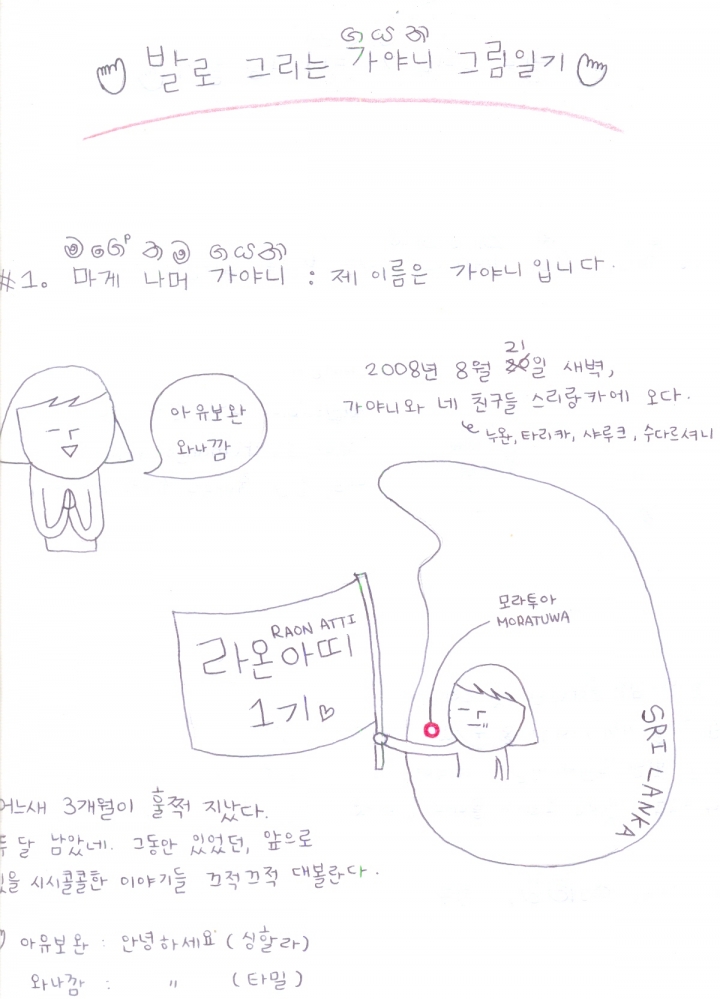 ගයනි
발로 그리는 가야니 그림일기
මගේ නම ගයනි
#1. 마게 나머 가야니 : 제 이름은 가야니 입니다.
2008년 8월 21일 새벽,
가야니와 네 친구들 스리랑카에 오다.
누완, 타리카, 샤루크, 수다르셔니
아유보완
와나깜
모라투아
MORATUWA
RAON ATTI
라온아띠
1기♡
SRI LANKA
어느새 3개월이 훌쩍 지났다.
두 달 남았네. 그동안 있었던, 앞으로
있을 시시콜콜한 이야기들 끄적끄적 대볼란다.
아유보완 : 안녕하세요 (싱할라)
와나깜 : " (타밀)